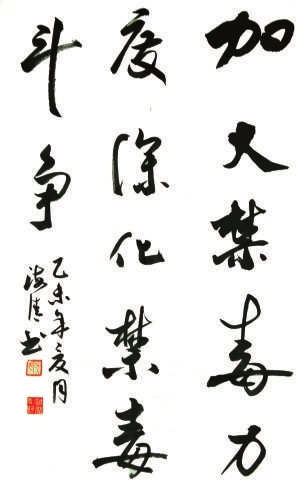 加大禁毒力
度深化禁毒
斗争
乙未年夏月
海清书